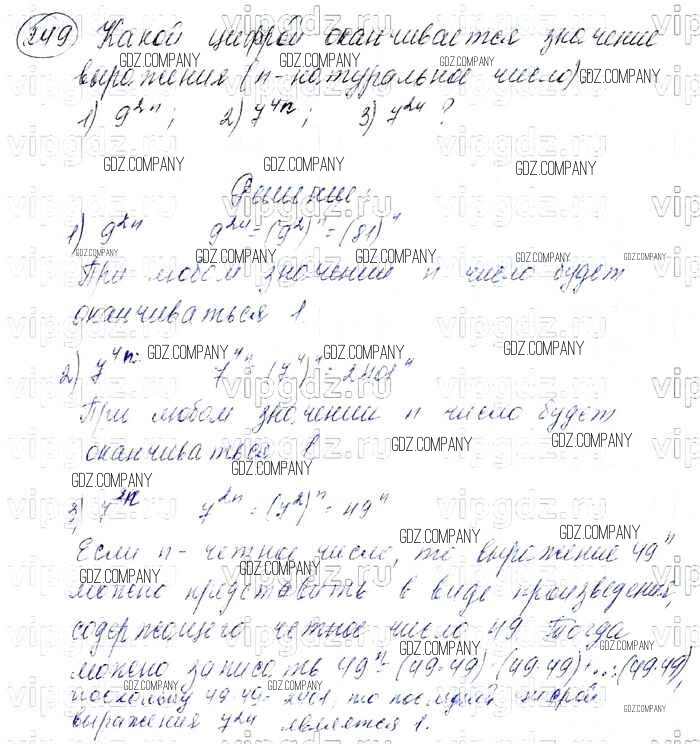 249 Какой цифрой оканчивается значение
выражения (n - натуральное число)
1) 9²ⁿ; 2) 7⁴ⁿ; 3) 7²ⁿ ?
Решение:
1) 9²ⁿ 9²ⁿ = (9²)ⁿ = (81)ⁿ
При любом значении n число будет
оканчиваться 1
2) 7⁴ⁿ: 7⁴ⁿ = (7⁴)ⁿ = 2401ⁿ
При любом значении n число будет
оканчиваться 1
3) 7²ⁿ 7²ⁿ = (7²)ⁿ = 49ⁿ
Если n - четное число, то выражение 49ⁿ
можно представить в виде произведения,
содержащего четное число 49. Тогда
можно записать 49ⁿ = (49·49)·(49·49)·...·(49·49),
поскольку 49·49 = 2401, то последней цифрой
выражения 7²ⁿ является 1.